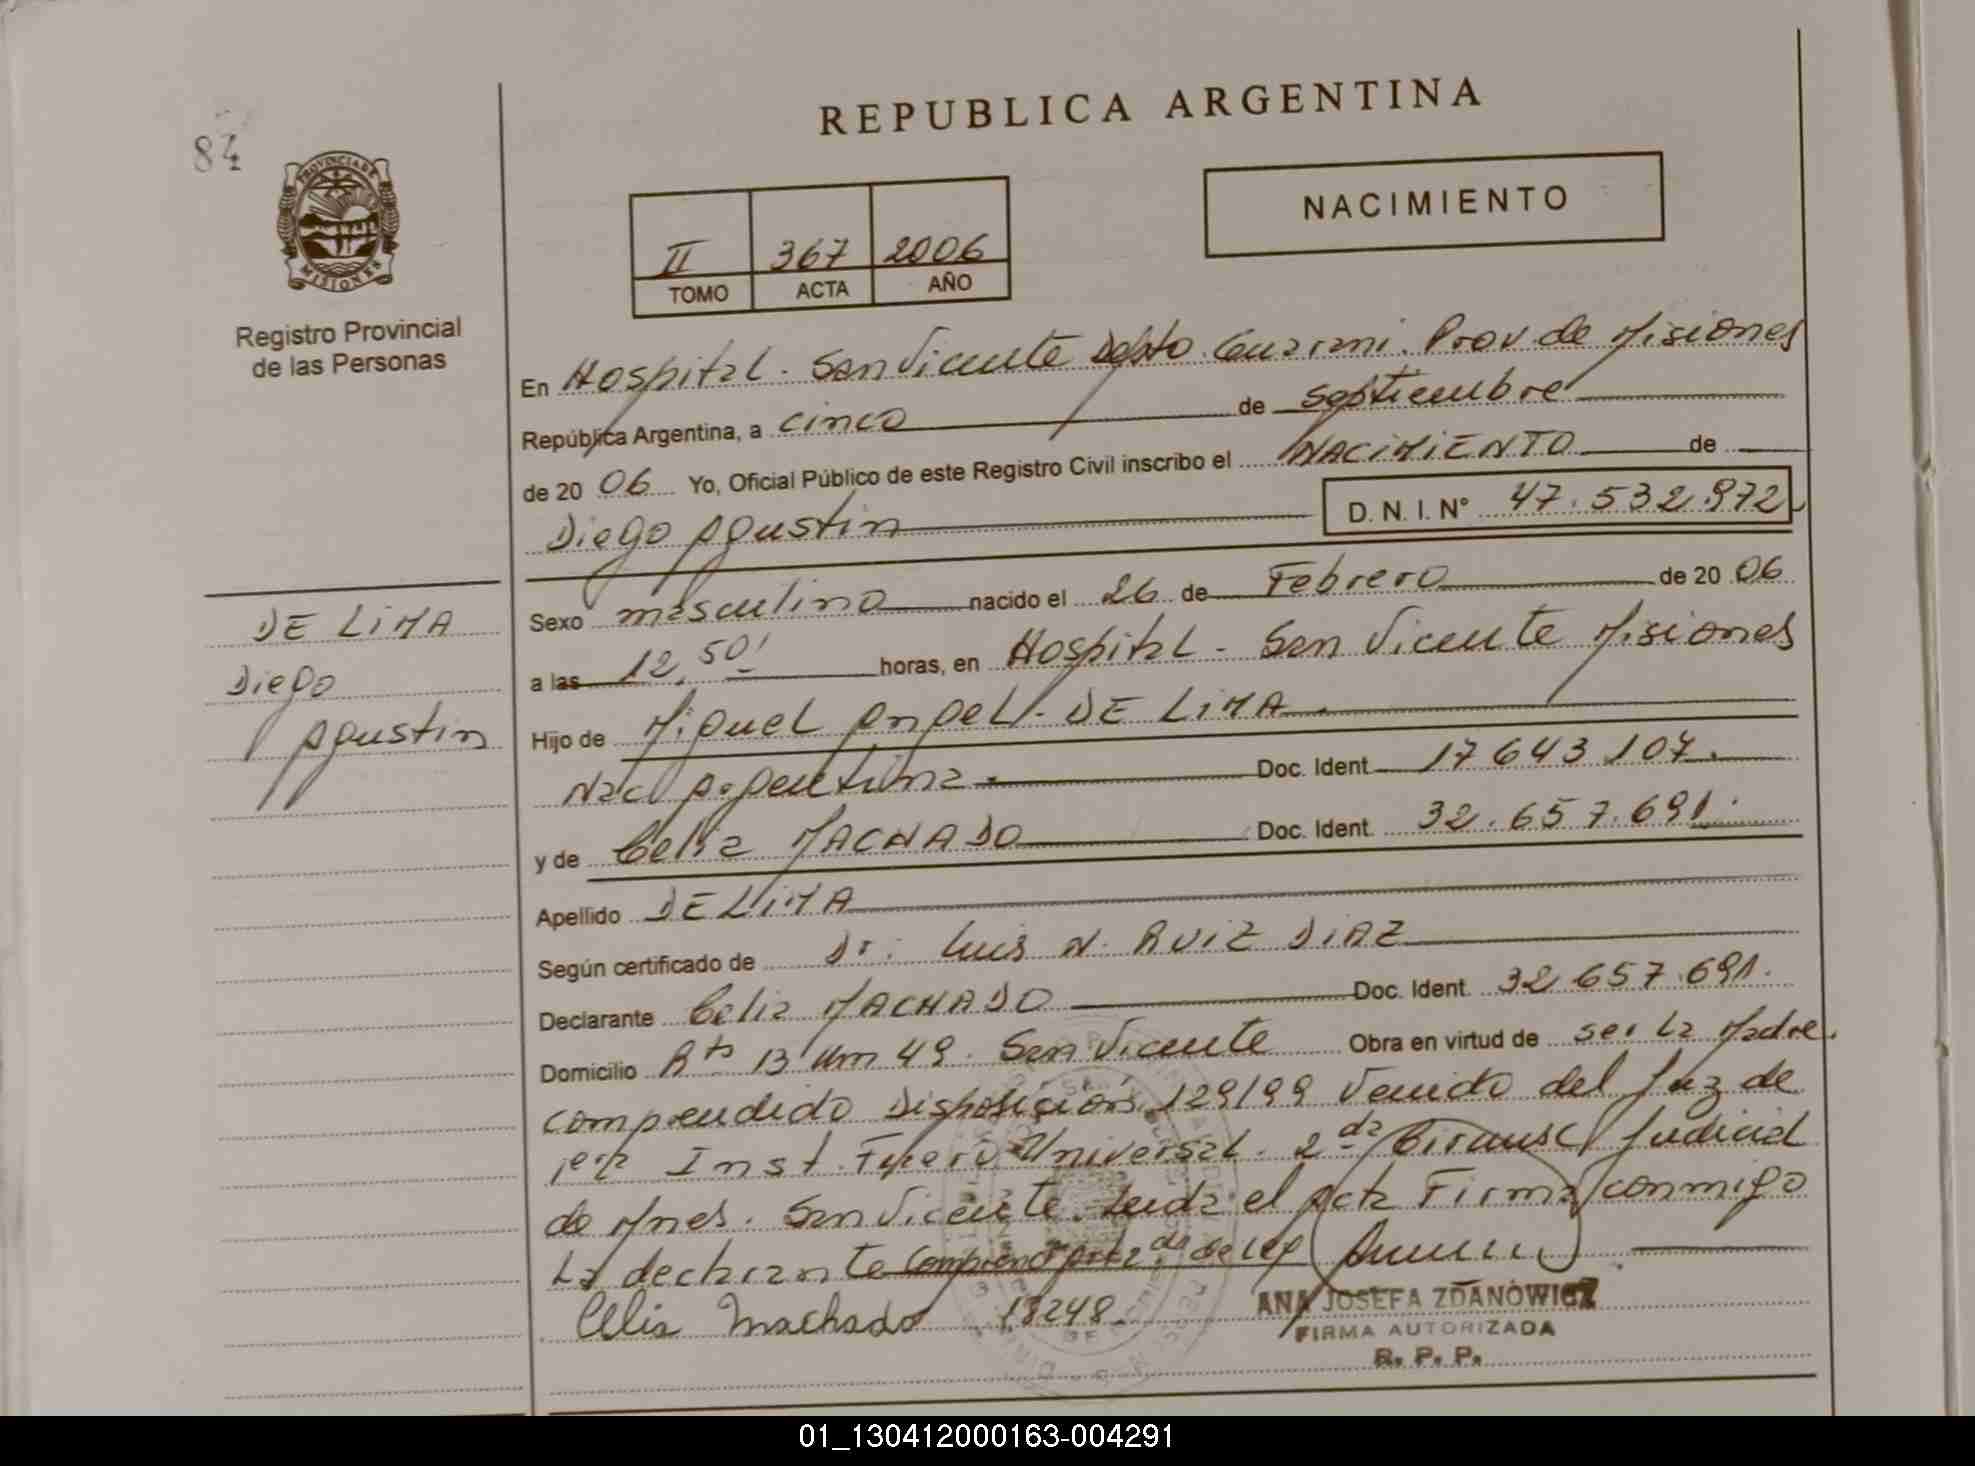 REPUBLICA ARGENTINA
84
PROVINCIA DE
MISIONES
Registro Provincial
de las Personas
NACIMIENTO
II 367 2006
TOMO ACTA AÑO
En Hospital. San Vicente Depto. Guarani. Prov. de Misiones
República Argentina, a cinco de septiembre
de 20 06 Yo, Oficial Público de este Registro Civil inscribo el NACIMIENTO de
Diego Agustin D. N. I. Nº 47.532.972
DE LIMA
Diego
Agustin
Sexo masculino nacido el 26 de Febrero de 20 06
a las 12,50' horas, en Hospital - San Vicente Misiones
Hijo de Miguel Angel. DE LIMA
Nac Argentina Doc. Ident. 17643107.
y de Celia MACHADO Doc. Ident. 32.657.691.
Apellido DE LIMA
Según certificado de Dr. Luis N. RUIZ DIAZ
Declarante Celia MACHADO Doc. Ident. 32 657.691.
Domicilio Rta 13 Km 49. San Vicente Obra en virtud de ser La Madre.
comprendido Disposición 129/99 Venido del Juz de
1era Inst. Fuero Universal. 2da Circunsc Judicial
de Mnes. San Vicente. Leida el Acta Firma conmigo
La declarante de Ley
Celia Machado 18248
ANA JOSEFA ZDANOWICZ
FIRMA AUTORIZADA
R. P. P.
01_130412000163-004291